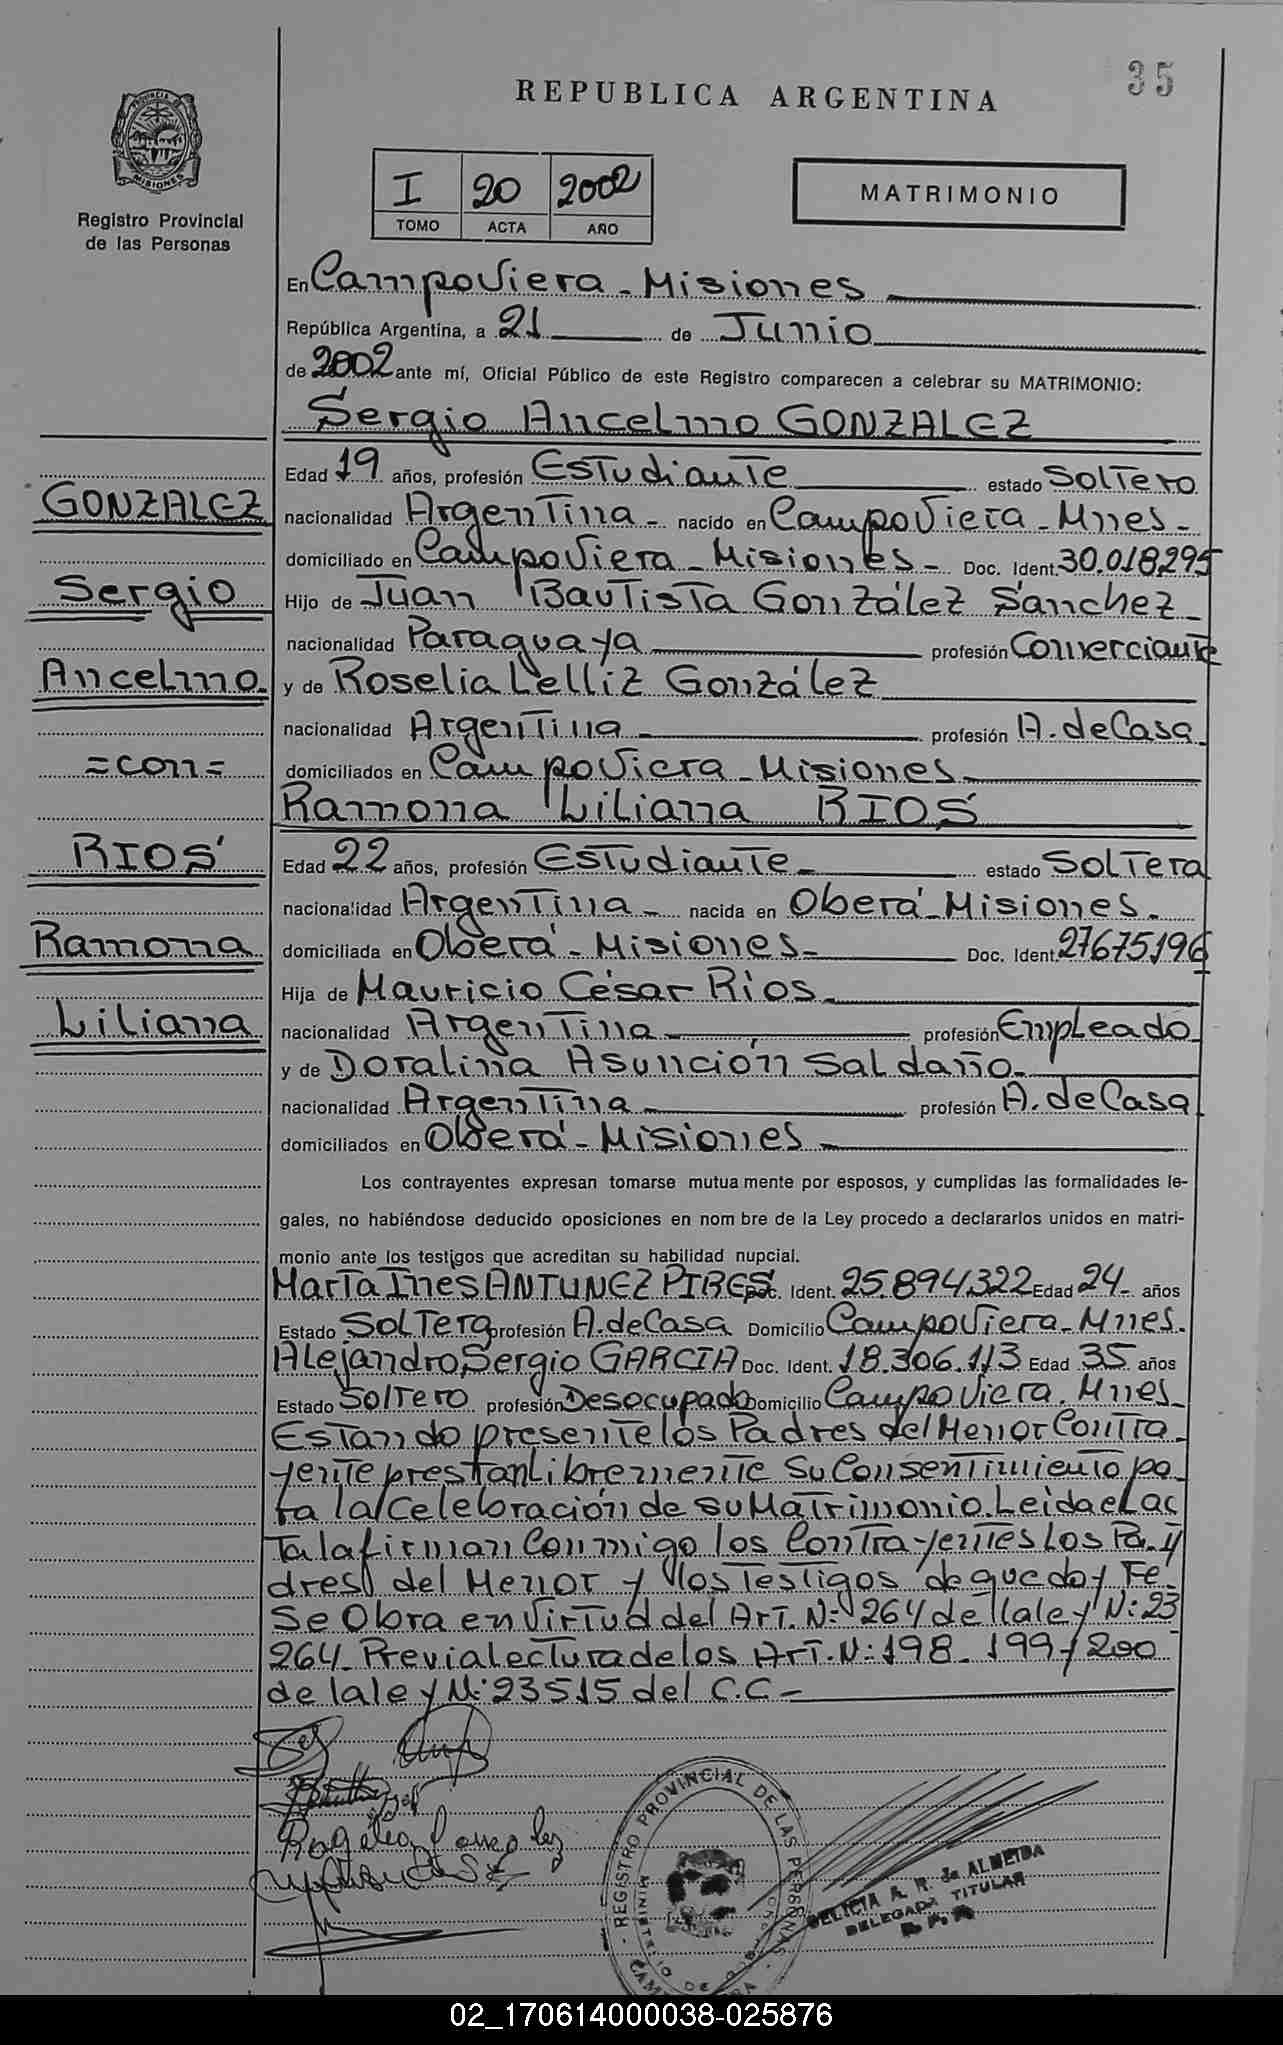 35
REPUBLICA ARGENTINA
PROVINCIA DE
MISIONES
Registro Provincial
de las Personas
I 20 2002
TOMO ACTA AÑO
MATRIMONIO
En Campo Viera - Misiones
República Argentina, a 21 de Junio
de 2002 ante mí, Oficial Público de este Registro comparecen a celebrar su MATRIMONIO:
Sergio Ancelmo GONZALEZ
Edad 19 años, profesión Estudiante estado Soltero
GONZALEZ
nacionalidad Argentina - nacido en Campo Viera - Mnes -
domiciliado en Campo Viera - Misiones - Doc. Ident. 30.018295
Sergio
Hijo de Juan Bautista González Sánchez
nacionalidad Paraguaya profesión Comerciante
Ancelmo
y de Roselia Lelliz González
nacionalidad Argentina profesión A. de Casa
= con =
domiciliados en Campo Viera - Misiones
Ramona Liliana RIOS
RIOS
Edad 22 años, profesión Estudiante estado Soltera
nacionalidad Argentina - nacida en Oberá - Misiones -
Ramona
domiciliada en Oberá - Misiones - Doc. Ident. 27675196
Hija de Mauricio César Rios
Liliana
nacionalidad Argentina profesión Empleado
y de Doralina Asunción Saldaño
nacionalidad Argentina profesión A. de Casa
domiciliados en Oberá - Misiones
Los contrayentes expresan tomarse mutua mente por esposos, y cumplidas las formalidades le-
gales, no habiéndose deducido oposiciones en nom bre de la Ley procedo a declararlos unidos en matri-
monio ante los testigos que acreditan su habilidad nupcial.
Marta Ines ANTUNEZ PIRES Doc. Ident. 25.894.322 Edad 24 - años
Estado Soltera profesión A. de Casa Domicilio Campo Viera - Mnes.
Alejandro Sergio GARCIA Doc. Ident. 18.306.113 Edad 35 años
Estado Soltero profesión Desocupado Domicilio Campo Viera - Mnes
Estando presente los Padres del Menor Contra
yente prestan Libremente su Consentimiento pa
ra la Celebración de su Matrimonio. Leida el ac
ta la firman Conmigo los Contrayentes Los Pa
dres del Menor y los Testigos de que doy Fe.
Se Obra en Virtud del Art. N: 264 de la ley N: 23
264 - Previa lectura de los Art. N: 198 - 199 y 200
de la ley N: 23515 del C.C -
Rogelia Gonzalez
REGISTRO PROVINCIAL DE LAS PERSONAS
MINISTERIO DE
DELICIA A. R. de ALMEIDA
DELEGADA TITULAR
R. P. P.
02_170614000038-025876